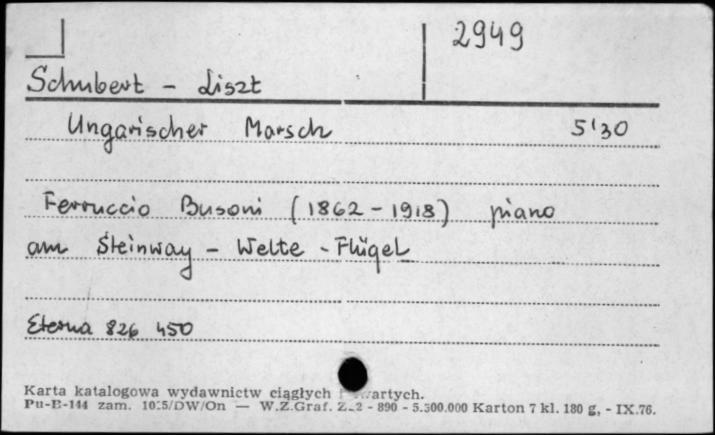 2949
Schubert - Liszt
Ungarischer Marsch 5'30
Ferruccio Busoni (1862-1918) piano
am Steinway - Welte - Flügel
Eterna 826 450
Karta katalogowa wydawnictw ciągłych
Pu-B-144 zam. /DW/On — W.Z.Graf. - 890 - 5.500.000 Karton 7 kl. 180 g, - IX.76.